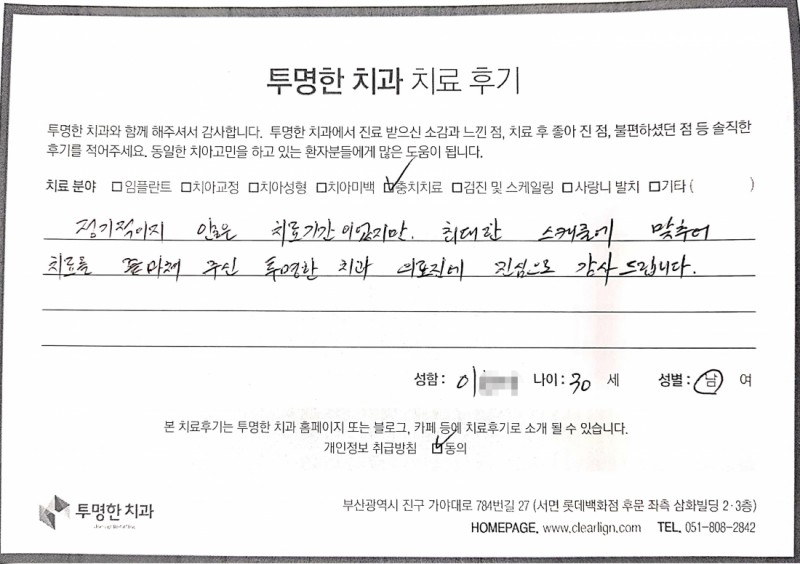 투명한 치과 치료 후기
투명한 치과와 함께 해주셔서 감사합니다. 투명한 치과에서 진료 받으신 소감과 느낀 점, 치료 후 좋아 진 점, 불편하셨던 점 등 솔직한
후기를 적어주세요. 동일한 치아고민을 하고 있는 환자분들에게 많은 도움이 됩니다.
치료 분야 □임플란트 □치아교정 □치아성형 □치아미백 ☑충치치료 □검진 및 스케일링 □사랑니 발치 □기타 ( )
정기적이지 않은 치료기간이었지만. 최대한 스케줄에 맞추어
치료를 마쳐 주신 투명한 치과 의료진에 진심으로 감사드립니다.
성함 : 이 나이 : 30 세 성별 : 남 여
본 치료후기는 투명한 치과 홈페이지 또는 블로그, 카페 등에 치료후기로 소개 될 수 있습니다.
개인정보 취급방침 ☑동의
투명한 치과
부산광역시 진구 가야대로 784번길 27 (서면 롯데백화점 후문 좌측 삼화빌딩 2·3층)
HOMEPAGE. www.clearlign.com TEL. 051-808-2842